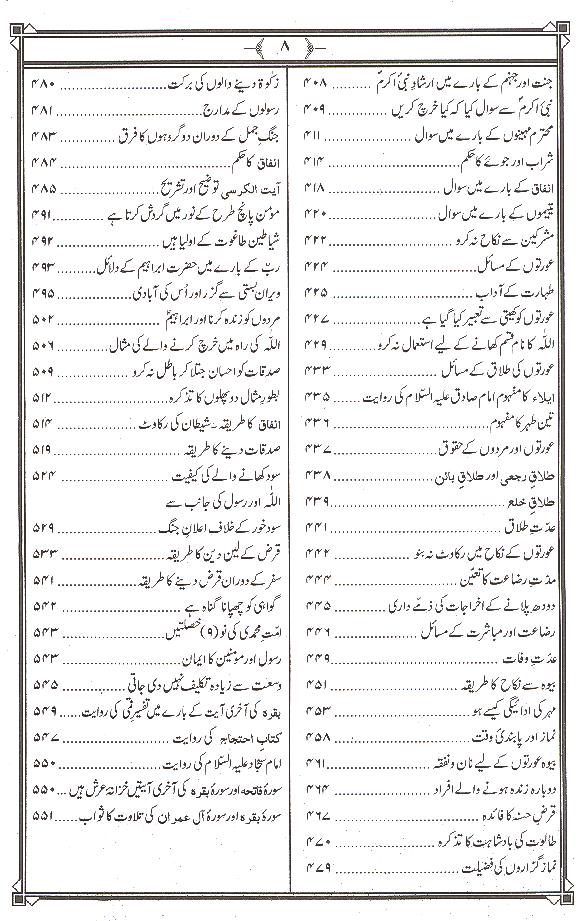 ۸
جنت اور جہنم کے بارے میں ارشادِ نبیٔ اکرمؐ ۴۰۸
نبیٔ اکرمؐ سے سوال کیا کہ کیا خرچ کریں ۴۰۹
محترم مہینوں کے بارے میں سوال ........ ۴۱۱
شراب اور جوئے کا حکم ........ ۴۱۴
انفاق کے بارے میں سوال ........ ۴۱۸
یتیموں کے بارے میں سوال ........ ۴۲۰
مشرکین سے نکاح نہ کرو ........ ۴۲۲
عورتوں کے مسائل ........ ۴۲۴
طہارت کے آداب ........ ۴۲۵
عورتوں کو کھیتی سے تعبیر کیا گیا ہے ........ ۴۲۷
اللہ کا نام قسم کھانے کے لیے استعمال نہ کرو ۴۲۹
عورتوں کی طلاق کے مسائل ........ ۴۳۳
ایلاء کا مفہوم امام صادق علیہ السّلام کی روایت ۴۳۵
تین طہر کا مفہوم ........ ۴۳۶
عورتوں اور مردوں کے حقوق ........ ۴۳۷
طلاقِ رجعی اور طلاقِ بائن ........ ۴۳۸
طلاقِ خلع ........ ۴۳۹
عدّتِ طلاق ........ ۴۴۱
عورتوں کے نکاح میں رکاوٹ نہ بنو ........ ۴۴۲
مدّتِ رضاعت کا تعیّن ........ ۴۴۴
دودھ پلانے کے اخراجات کی ذمّے داری ........ ۴۴۵
رضاعت اور مباشرت کے مسائل ........ ۴۴۶
عدّتِ وفات ........ ۴۴۹
بیوہ سے نکاح کا طریقہ ........ ۴۵۱
مہر کی ادائیگی کیسے ہو ........ ۴۵۳
نماز اور پابندیٔ وقت ........ ۴۵۸
بیوہ عورتوں کے لیے نان و نفقہ ........ ۴۶۱
دوبارہ زندہ ہونے والے افراد ........ ۴۶۴
قرضِ حسنہ کا فائدہ ........ ۴۶۷
طالوت کی بادشاہت کا تذکرہ ........ ۴۷۰
نماز گزاروں کی فضیلت ........ ۴۷۹
زکوٰۃ دینے والوں کی برکت ........ ۴۸۰
رسولوں کے مدارج ........ ۴۸۱
جنگِ جمل کے دوران دو گروہوں کا فرق ........ ۴۸۳
انفاق کا حکم ........ ۴۸۴
آیت الکرسی توضیح اور تشریح ........ ۴۸۵
مؤمن پانچ طرح کے نور میں گردش کرتا ہے ........ ۴۹۱
شیاطین طاغوت کے اولیا ہیں ........ ۴۹۲
ربّ کے بارے میں حضرت ابراہیم کے دلائل ........ ۴۹۳
ویران بستی سے گزر اور اُس کی آبادی ........ ۴۹۵
مردوں کو زندہ کرنا اور ابراہیمؑ ........ ۵۰۲
اللہ کی راہ میں خرچ کرنے والے کی مثال ........ ۵۰۶
صدقات کو احسان جتلا کر باطل نہ کرو ........ ۵۰۹
بطورِ مثال دو پھلوں کا تذکرہ ........ ۵۱۲
انفاق کا طریقہ۔ شیطان کی رکاوٹ ........ ۵۱۴
صدقات دینے کا طریقہ ........ ۵۱۹
سود کھانے والے کی کیفیت ........ ۵۲۴
اللہ اور رسول کی جانب سے
سود خور کے خلاف اعلانِ جنگ ........ ۵۲۹
قرض کے لین دین کا طریقہ ........ ۵۳۳
سفر کے دوران قرض دینے کا طریقہ ........ ۵۴۱
گواہی کو چھپانا گناہ ہے ........ ۵۴۲
امّتِ محمدی کی نو (۹) خصلتیں ........ ۵۴۳
رسول اور مومنین کا ایمان ........ ۵۴۳
وسعت سے زیادہ تکلیف نہیں دی جاتی ........ ۵۴۵
بقرہ کی آخری آیت کے بارے میں تفسیر قمی کی روایت ۵۴۹
کتاب احتجاج کی روایت ........ ۵۴۷
امام سجّاد علیہ السّلام کی روایت ........ ۵۵۰
سورۂ فاتحہ اور سورۂ بقرہ کی آخری آیتیں خزانۂ عرش ہیں ۵۵۰
سورۂ بقرہ اور سورۂ آل عمران کی تلاوت کا ثواب ۵۵۱